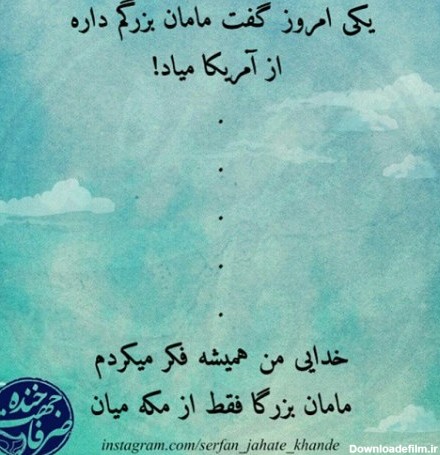 یکی امروز گفت مامان بزرگم داره
از آمریکا میاد!
.
.
.
.
.
خدایی من همیشه فکر میکردم
مامان بزرگا فقط از مکه میان
صرفا جهت خنده
instagram.com/serfan_jahate_khande
Downloadefilm.ir